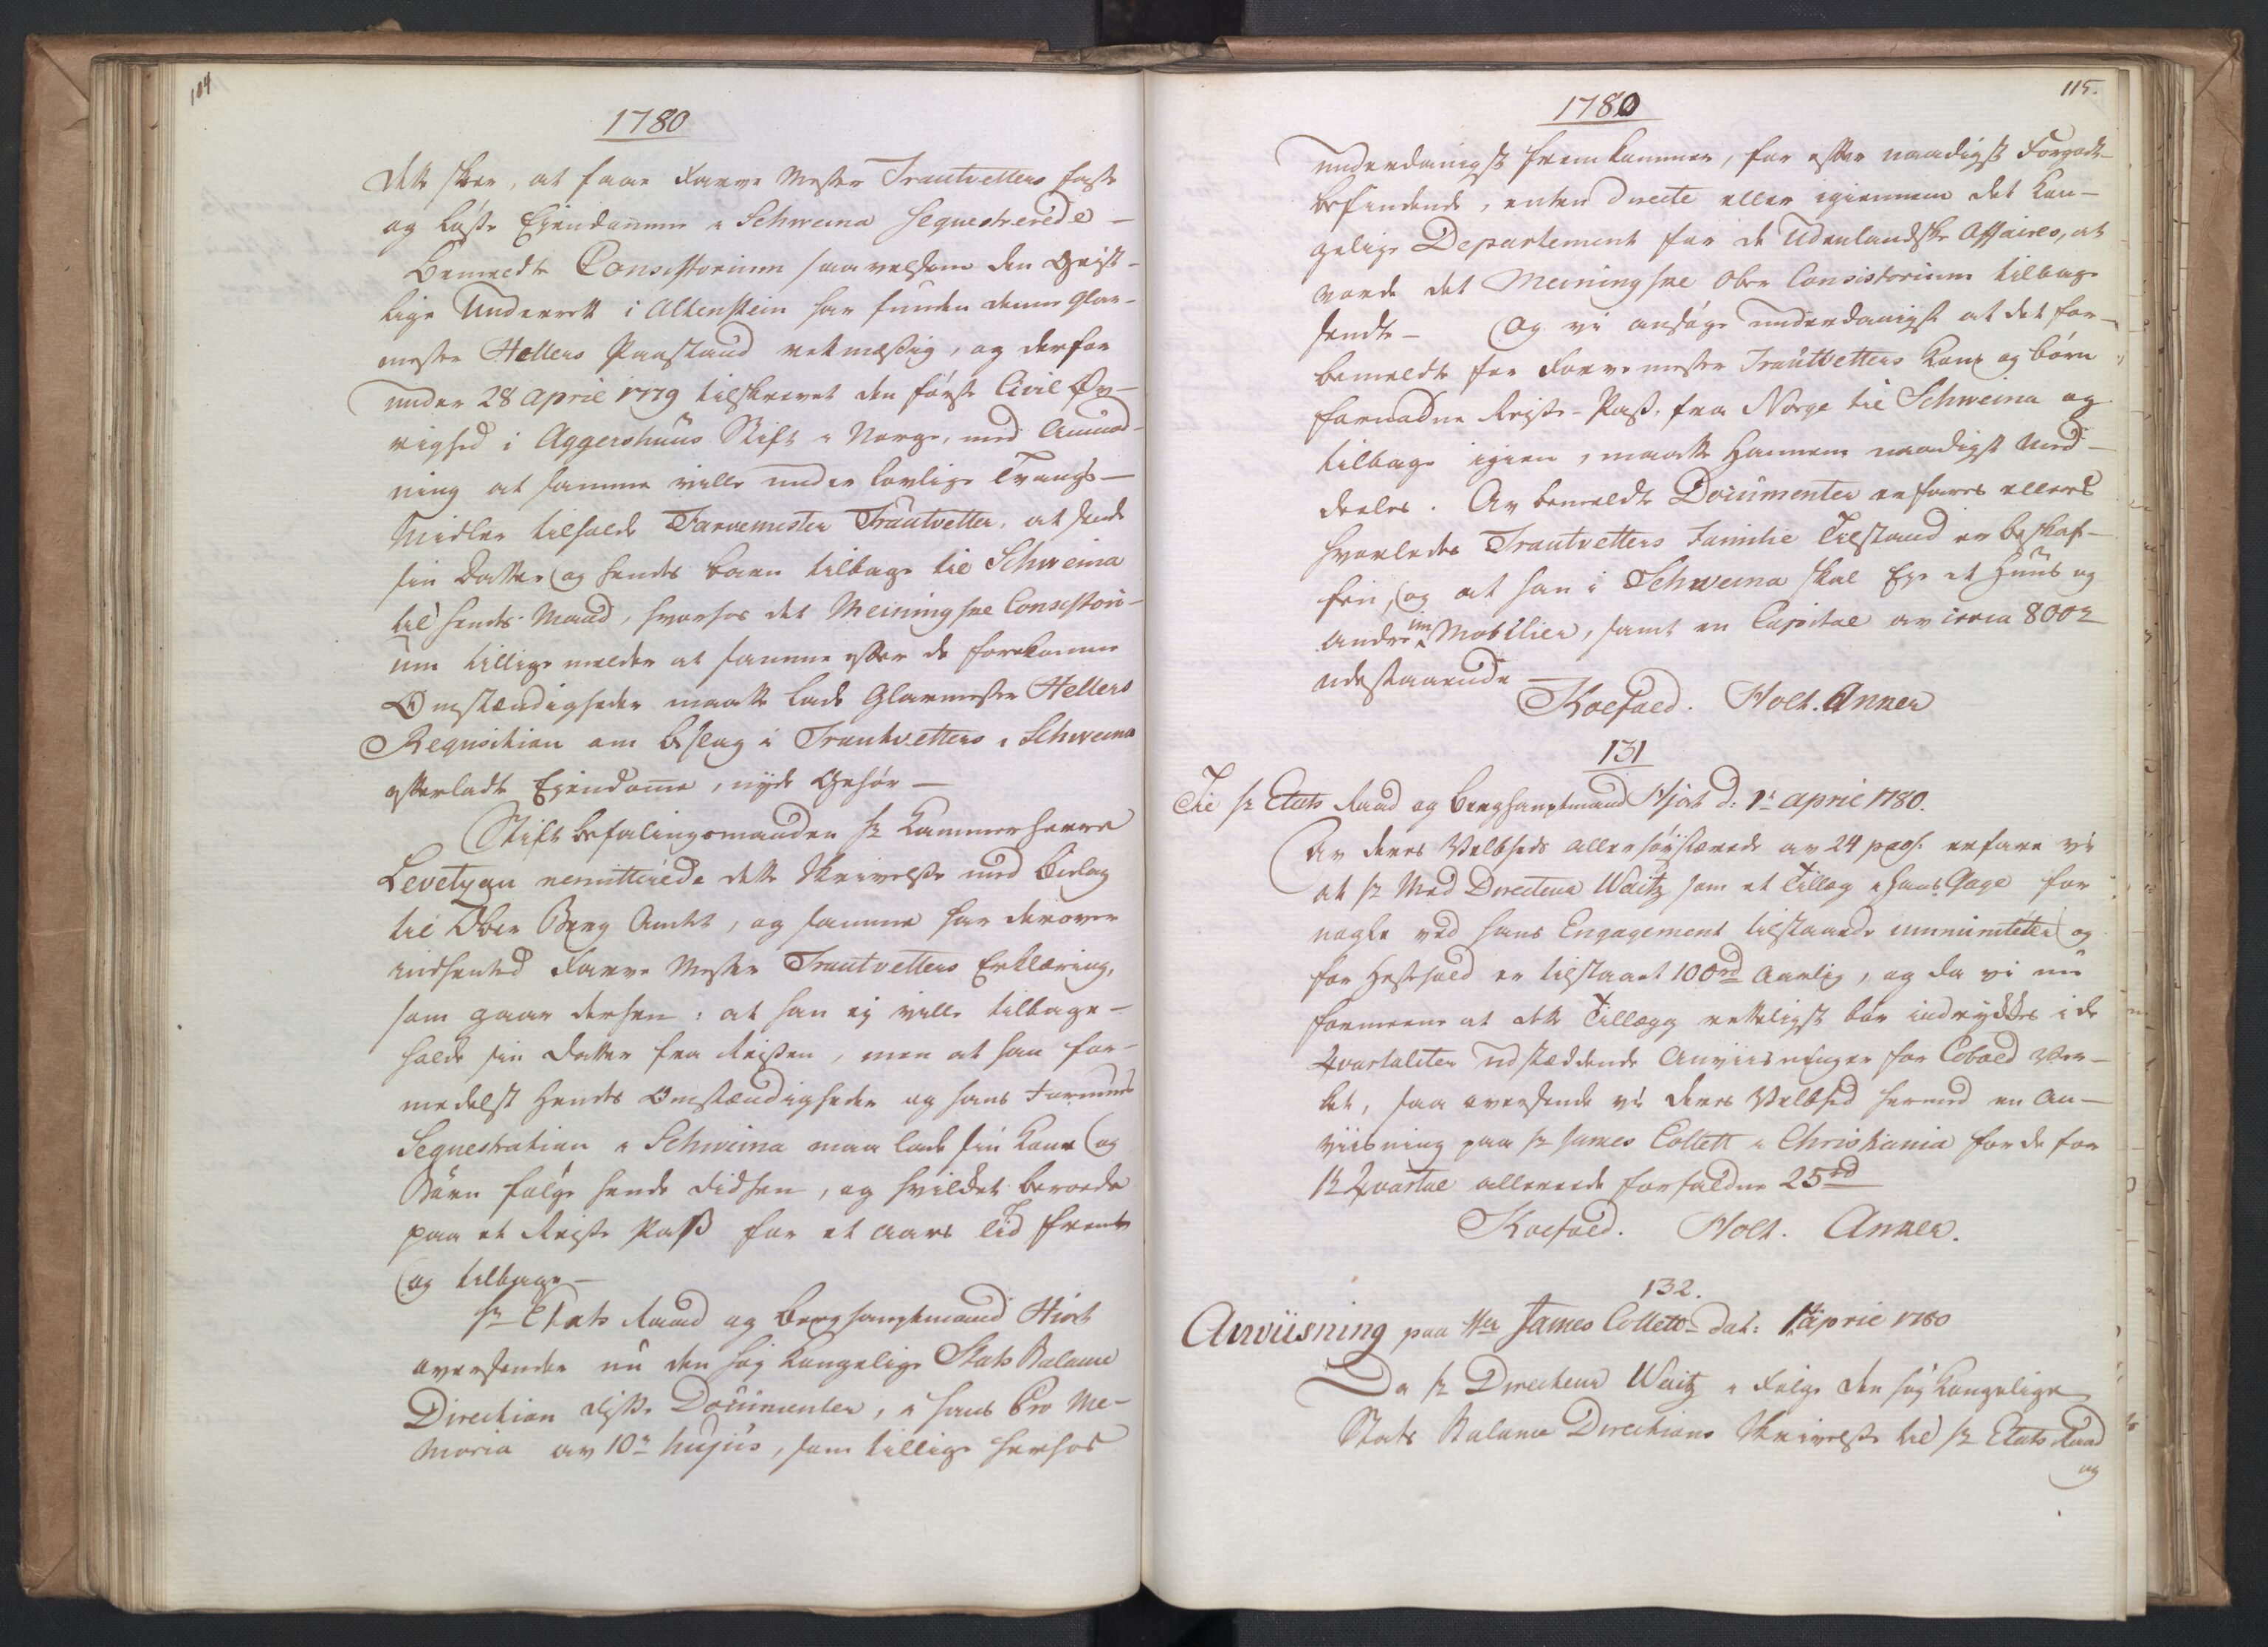 104
1780
dette skeer, at faae Farve Mester Trautvetters faste
og løse Ejendomme i Schweina Sequestrerede –
Bemeldte Consistorium saavelsom den Geist-
lige Underrett i Altenstein har funden denne Glar-
mester Hellers Paastand retmæssig, og derfor
under 28 April 1779 tilskrevet den første Civil Øv-
righed i Aggershuus Stift i Norge, med Anmod-
ning at samme ville under lovlige Tvangs-
Midler tilholde Farvemester Trautvetter, at sende
sin Datter og hendes barn tilbage til Schweina
til hendes Mand, hvorhos det Meiningske Consistori-
um tillige melder at samme efter de forekomne
Omstændigheder maatte lade Glarmester Hellers
Requisition om beslag i Trautvetters i Schweina
efterladte Ejendomme, nyde Gehør –
Stiftbefalingsmanden Hr Kammerherre
Levetzau remitterede dette Skrivelse med bielag
til Ober Berg Amtet, og samme har derover
indhented Farve Mester Trautvetters Erklæring,
som gaar derhen: at han ej ville tilbage-
holde sin Datter fra Reisen, men at han for-
medelst hendes Omstændigheder og hans Formues
Sequestration i Schweina maa lade sin Kone og
Børn følge hende didhen, og hvilket beroede
paa et Reise Pass for et aars Tid frem
og tilbage –
Hr Etats Raad og Berghauptmand Hiort
oversender nu den høj Kongelige Stats Balance
Direction disse Documenter, i hans Pro Me-
moria av 10de hujus, som tillige herhos
115.
1780
underdanigst fremkommer, for efter naadigst Forgodt-
befindende, enten directe eller igiennem det Kon-
gelige Departement for de Udenlandske Affaires, at
vorde det Meiningske Ober Consistorium tilbage
sendte – Og vi ansøge underdanigst at det for-
bemeldte for Farvemester Trautvetters Kone og børn
fornødne Reise-Pass, fra Norge til Schweina og
tilbage igien, maatte hannem naadigst Med-
deeles. Av bemeldte Documenter erfares ellers
hvorledes Trautvetters Familie Tilstand er beskaf-
fen, og at han i Schweina skal Eje et Huus og
andre im Mobilier, samt en Capital av circa 800
udestaaende –
Koefoed. Holt. Anker
131
Til Hr Etats Raad og Berghauptmand Hjort d: 1te April 1780.
Av deres Velbheds allerhøystærede av 24 pass. erfare vi
at Hr Med Directeur Waitz som et Tillæg i hans Gage for
nogle ved hans Engagement tilstaaede immuniteter og
for Hestehold er tilstaaet 100 rd Aarlig, og da vi nu
formeene at dette Tillægg retteligst bør indrykkes i de
Qvartaliter udstædende Anviisninger for Cobold Ver-
ket, saa oversende vi deres Velbhed hermed en An-
viisning paa Hr James Collett i Christiania for de for
1te Qvartal allereede forfaldne 25 rd
Koefoed. Holt. Anker.
132.
Anviisning paa Hr James Collett dat: 1 April 1780
Da Hr Directeur Waitz i Følge den høj Kongelige
Stats Balance Directions Skrivelse til Hr Etats Raad
og